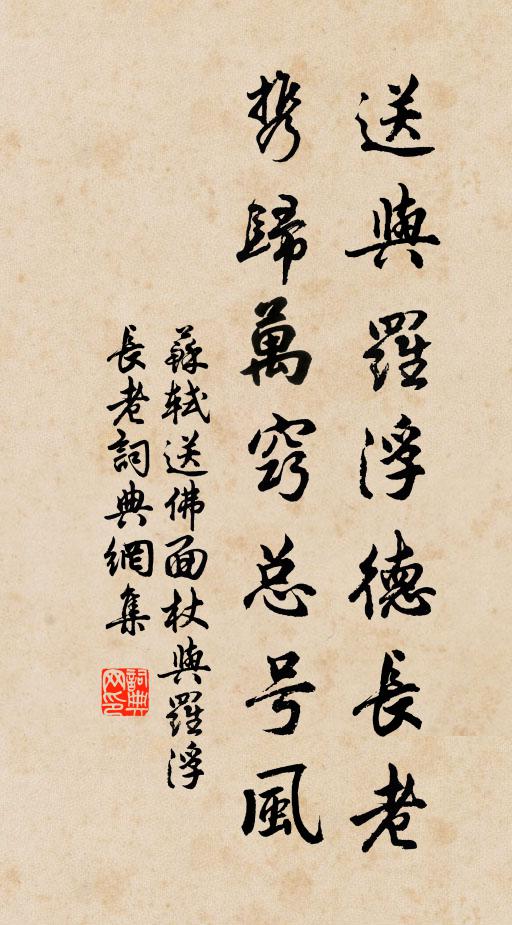 送與羅浮德長老
携歸萬窍总号風
蘇軾送佛面杖與羅浮
長老詞典網集
詞典
网印